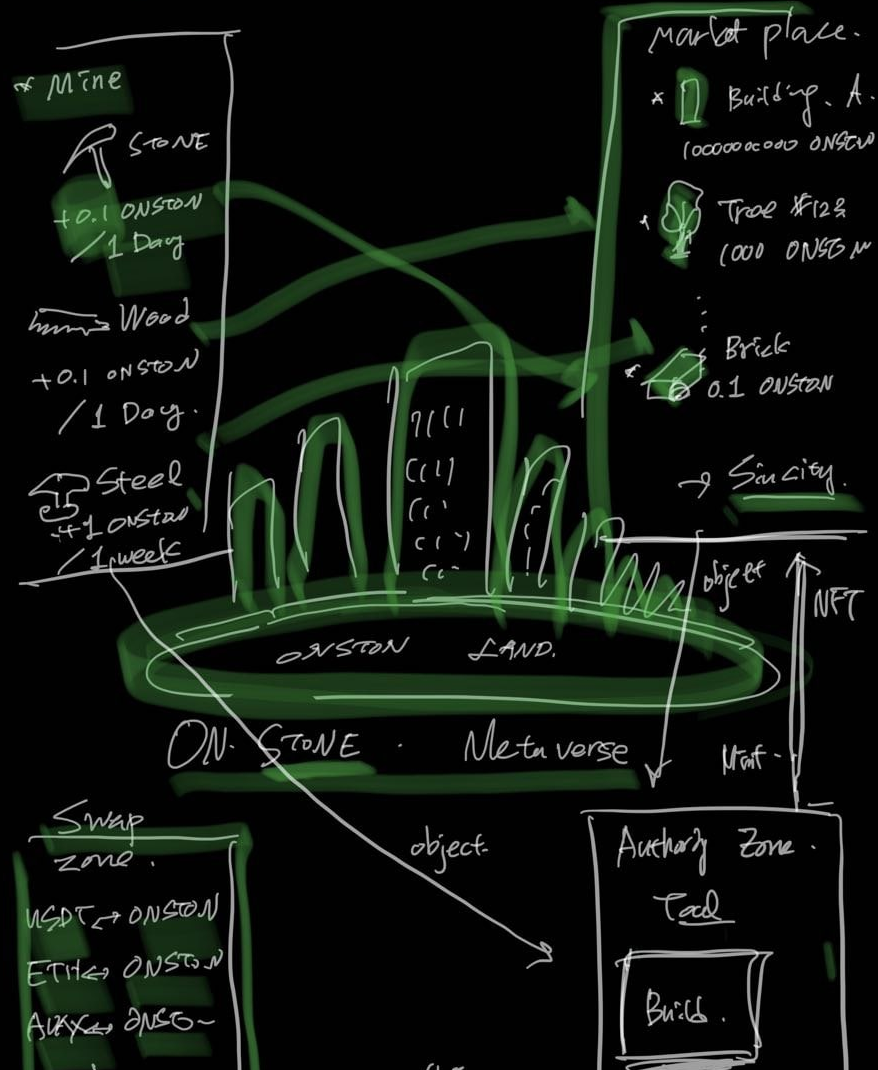 * Mine
STONE
+0.1 ONSTON
/1 Day
Wood
+0.1 ONSTON
/1 Day.
Steel
+1 ONSTON
/1 week
Market place.
* Building. A.
10000000000 ONSTON
* Tree #123
1000 ONSTON
* Brick
0.1 ONSTON
→ Sincity.
object
NFT
ONSTON LAND.
ON. STONE . Metaverse
object
Swap
zone.
USDT ↔ ONSTON
ETH ↔ ONSTON
ONSTO
Zone.
Tool
Build.